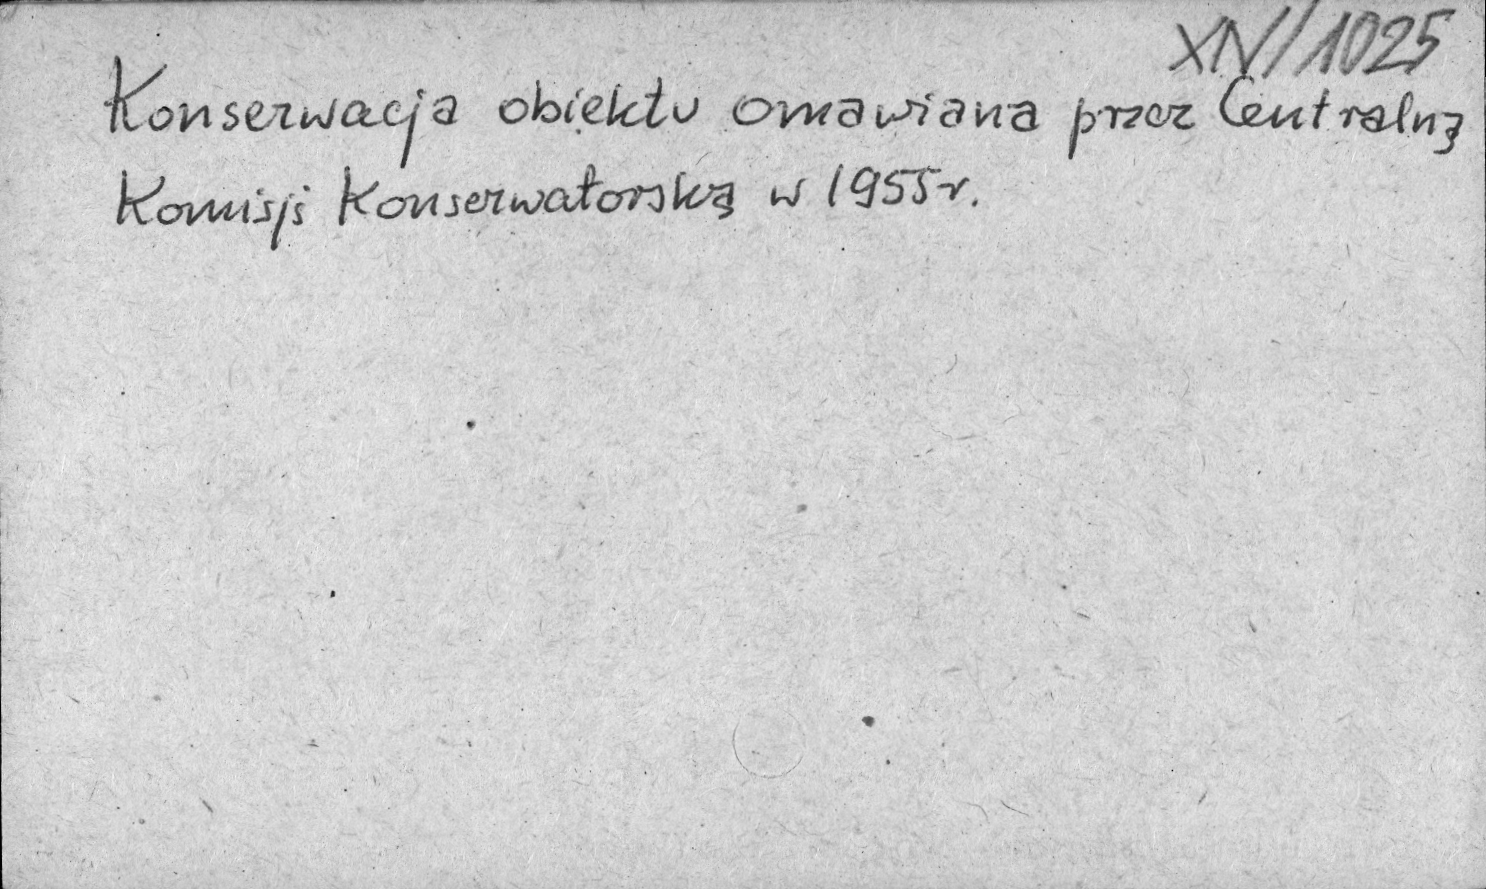 XIV/1025
Konserwacja obiektu omawiana przez Centralną
Komisji Konserwatorską w 1955 r.